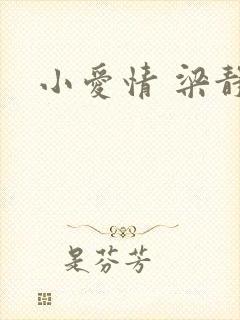 小愛情 梁靜
是芬芳